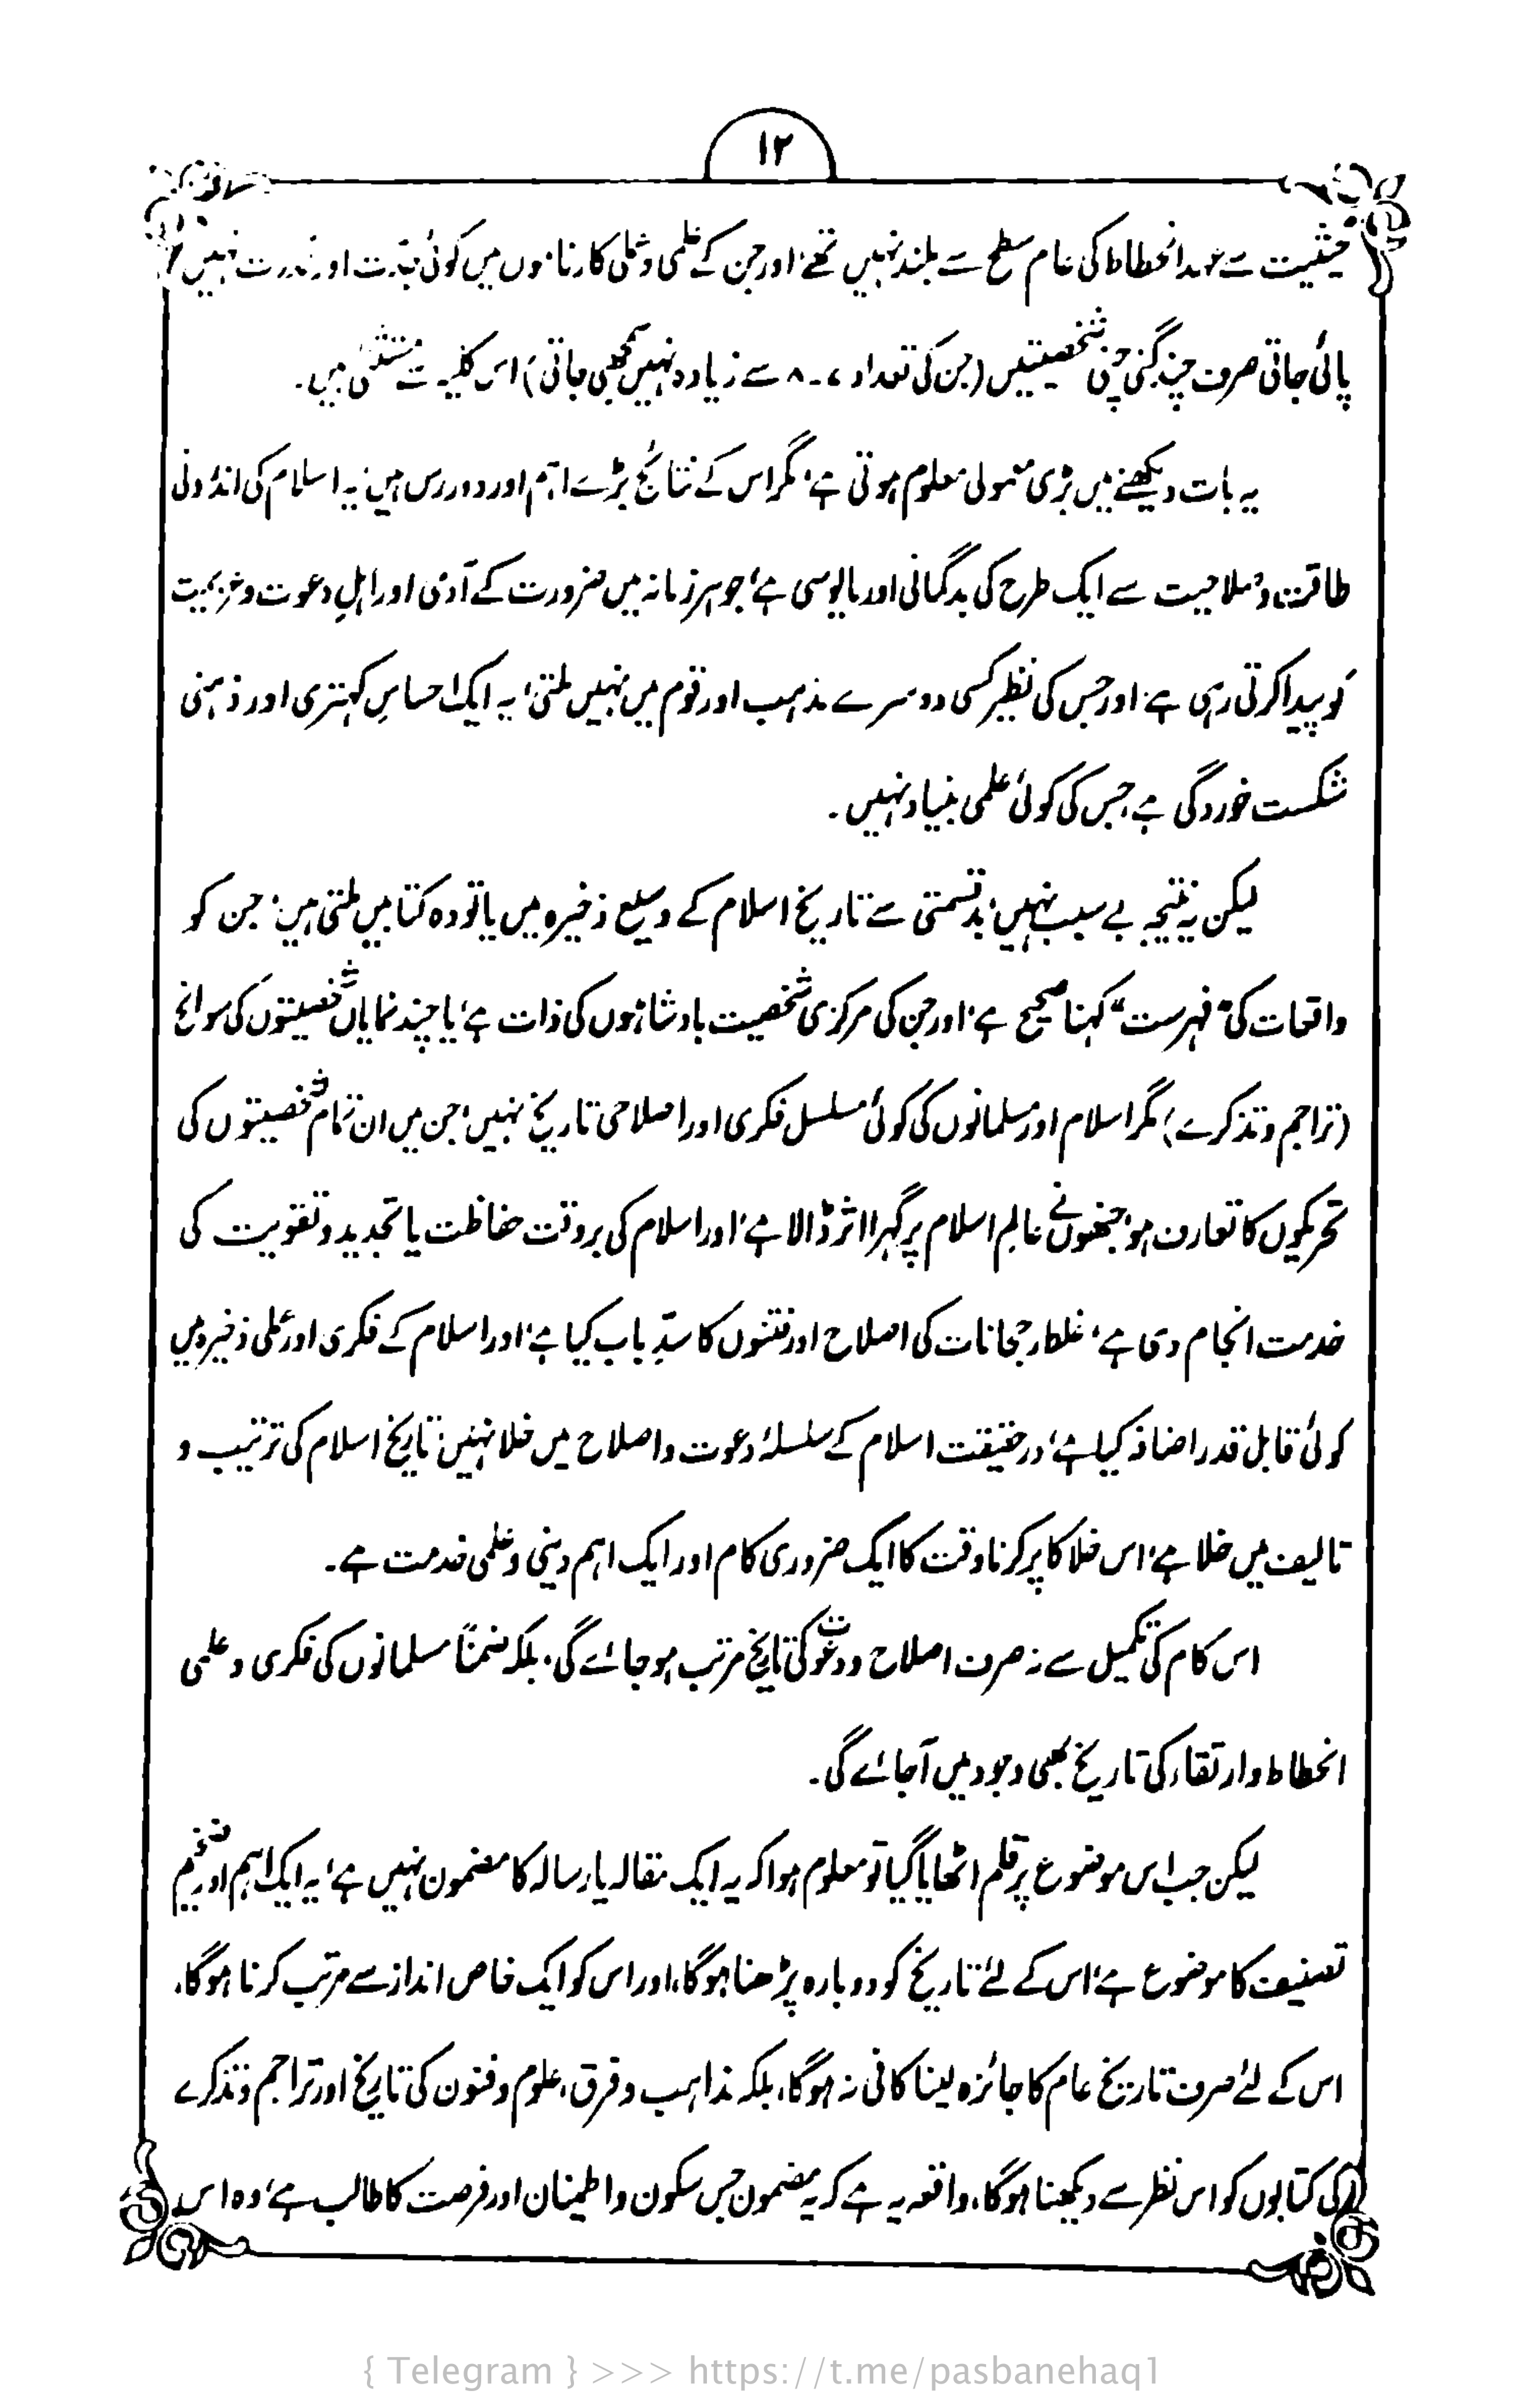 ۱۲
حیثیت سے عہد انحطاط کی عام سطح سے بلند نہیں تھے، اور جن کے علمی و عملی کارناموں میں کوئی جدت اور ندرت نہیں
پائی جاتی صرف چند گنی چنی شخصیتیں (جن کی تعداد ۷-۸ سے زیادہ نہیں سمجھی جاتی) اس کلیہ سے مستثنیٰ ہیں۔
یہ بات دیکھنے میں بڑی معمولی معلوم ہوتی ہے، مگر اس کے نتائج بڑے اہم اور دور رس ہیں، یہ اسلام کی اندرونی
طاقت و صلاحیت سے ایک طرح کی بدگمانی اور مایوسی ہے، جو ہر زمانہ میں ضرورت کے آدمی اور اہلِ دعوت و عزیمت
کو پیدا کرتی رہی ہے، اور جس کی نظیر کسی دوسرے مذہب اور قوم میں نہیں ملتی، یہ ایک احساسِ کہتری اور ذہنی
شکست خوردگی ہے، جس کی کوئی علمی بنیاد نہیں۔
لیکن یہ نتیجہ بے سبب نہیں، بدقسمتی سے تاریخ اسلام کے وسیع ذخیرہ میں یا تو وہ کتابیں ملتی ہیں، جن کو
واقعات کی "فہرست" کہنا صحیح ہے، اور جن کی مرکزی شخصیت بادشاہوں کی ذات ہے، یا چند نمایاں شخصیتوں کی سوانح
(تراجم و تذکرے) مگر اسلام اور مسلمانوں کی کوئی مسلسل فکری اور اصلاحی تاریخ نہیں، جن میں ان تمام شخصیتوں کی
تحریکوں کا تعارف ہو، جنھوں نے عالمِ اسلام پر گہرا اثر ڈالا ہے، اور اسلام کی بروقت حفاظت یا تجدید و تقویت کی
خدمت انجام دی ہے، غلط رجحانات کی اصلاح اور فتنوں کا سدِّ باب کیا ہے، اور اسلام کے فکری اور عملی ذخیرہ میں
کوئی قابل قدر اضافہ کیا ہے، درحقیقت اسلام کے سلسلۂ دعوت و اصلاح میں خلا نہیں، تاریخ اسلام کی ترتیب و
تالیف میں خلا ہے، اس خلا کا پر کرنا وقت کا ایک ضروری کام اور ایک اہم دینی و علمی خدمت ہے۔
اس کام کی تکمیل سے نہ صرف اصلاح و دعوت کی تاریخ مرتب ہو جائے گی، بلکہ ضمناً مسلمانوں کی فکری و علمی
انحطاط و ارتقاء کی تاریخ بھی وجود میں آجائے گی۔
لیکن جب اس موضوع پر قلم اٹھایا گیا تو معلوم ہوا کہ یہ ایک مقالہ یا رسالہ کا مضمون نہیں ہے، یہ ایک اہم اور ضخیم
تصنیف کا موضوع ہے، اس کے لئے تاریخ کو دوبارہ پڑھنا ہوگا، اور اس کو ایک خاص انداز سے مرتب کرنا ہوگا،
اس کے لئے صرف تاریخ عام کا جائزہ لینا کافی نہ ہوگا، بلکہ مذاہب و فرق، علوم و فنون کی تاریخ اور تراجم و تذکرے
کی کتابوں کو اس نظر سے دیکھنا ہوگا، واقعہ یہ ہے کہ یہ مضمون جس سکون و اطمینان اور فرصت کا طالب ہے، وہ اس
{ Telegram } >>> https://t.me/pasbanehaq1